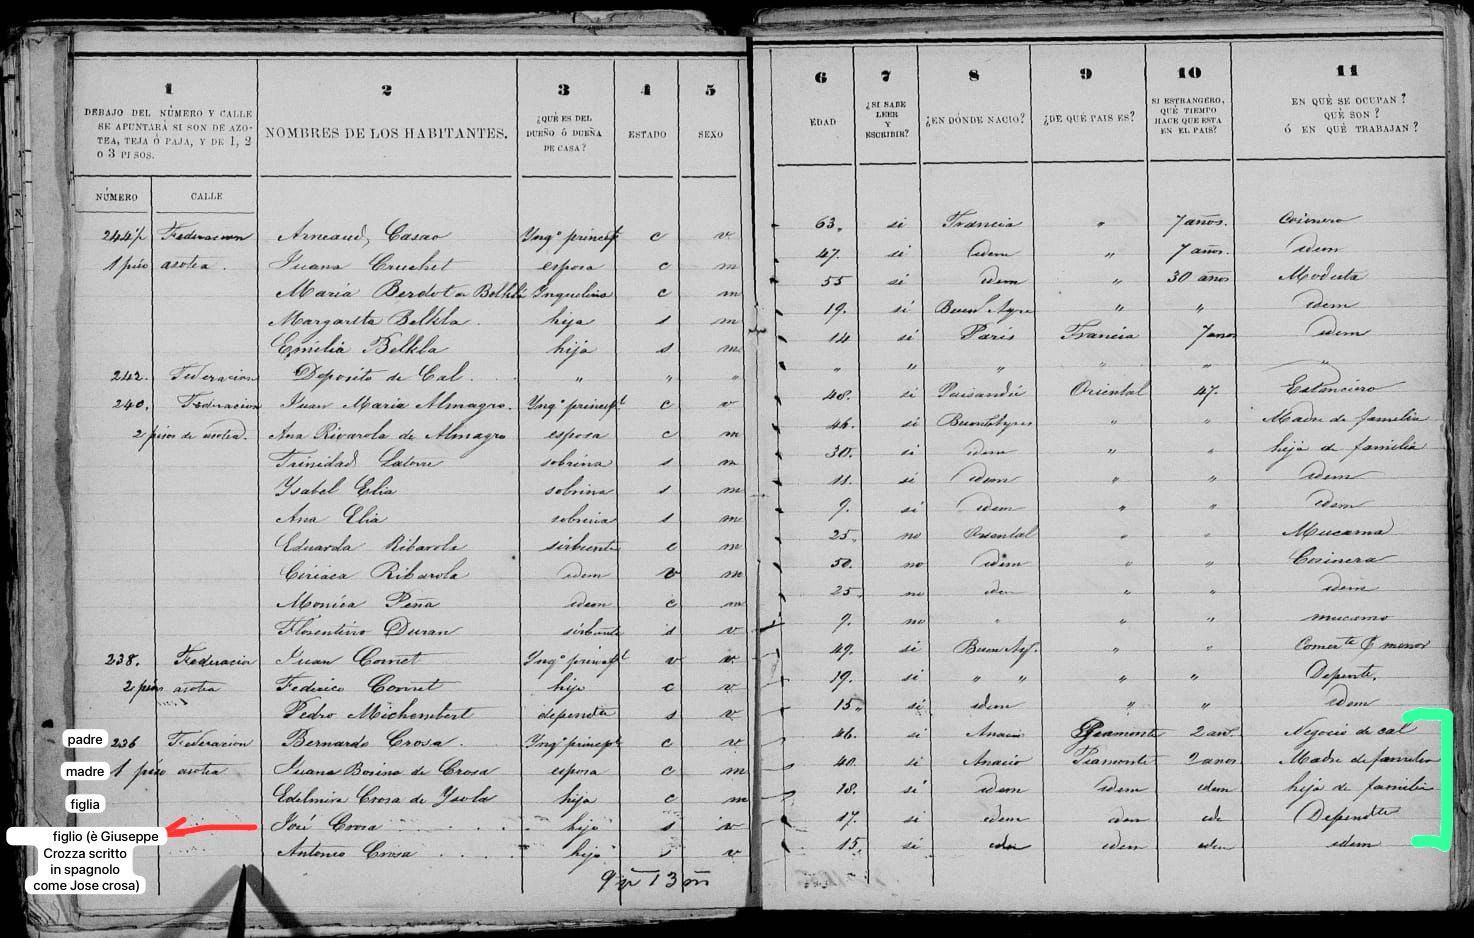 1
DEBAJO DEL NÚMERO Y CALLE
SE APUNTARÁ SI SON DE AZO-
TEA, TEJA Ó PAJA, Y DE 1, 2
O 3 PISOS.
NÚMERO
CALLE
2
NOMBRES DE LOS HABITANTES.
3
¿QUÉ ES DEL
DUEÑO Ó DUEÑA
DE CASA?
4
ESTADO
5
SEXO
6
EDAD
7
¿SI SABE
LEER
Y
ESCRIBIR?
8
¿EN DÓNDE NACIO?
9
¿DE QUE PAIS ES?
10
SI ESTRANGERO,
QUÉ TIEMPO
HACE QUE ESTA
EN EL PAIS?
11
EN QUÉ SE OCUPAN?
QUÉ SON?
Ó EN QUÉ TRABAJAN?
Federacion Arneaud, Casao c v 63. si Francia " 7 años. Cosinero
1 piso asotea. Juana Cruchet esposa c m 47. si idem " 7 años. idem
Maria Berdot Ynquelina c m 55 si idem " 30 años Modista
Margarita Belkla. hija s m 19. si Buen Ayre " " idem
Emilia Belkla hija s m 14 si Paris Francia 7 anos idem
242. Federacion Deposito de Cal. " " " " " " " "
240. Federacion Juan Maria Almagro. Ynqº c v 48. si Paisandú Oriental 47. Estanciero
2 pisos de asotea. Ana Rivarola de Almagro esposa c m 44. si " " Madre de familia
Trinidad Latorre sobrina s m 30. si idem " " hija de familia
Ysabel Elia sobrina s m 11. si idem " " idem
Ana Elia sobrina s m 9. si idem " " idem
Eduarda Ribarola sirbiente c m 25. no Oriental " " Mucama
Ciriaca Ribarola idem v m 50. no idem " " Cosinera
Monica Peña idem c m 25. no idem " " idem
Florentino Duran sirbiente s v 9. no " " " mucamo
238. Federacion Juan Cornet Ynqº v v 49. si Buen Ay. " " menor
2 pisos asotea Federico Cornet hijo c v 19. si " " " " Depente.
Pedro Michembert dependte s v 15 si idem " " idem
236 Federacion Bernardo Crosa. Ynqº c v 46. si Piamonte 2 an. Negocio de cal
1 piso asotea Juana Bosino de Crosa esposa c m 40. si Piamonte 2 anos Madre de familia
Edelmira Crosa de Ysola hija c m 18. si idem idem idem hija de familia
José Crosa hijo s v 17. si idem idem ide Dependte
Antonio Crosa hijo s v 15. si idem idem idem idem
9 v 13 m
padre
madre
figlia
figlio (è Giuseppe
Crozza scritto
in spagnolo
come Jose crosa)